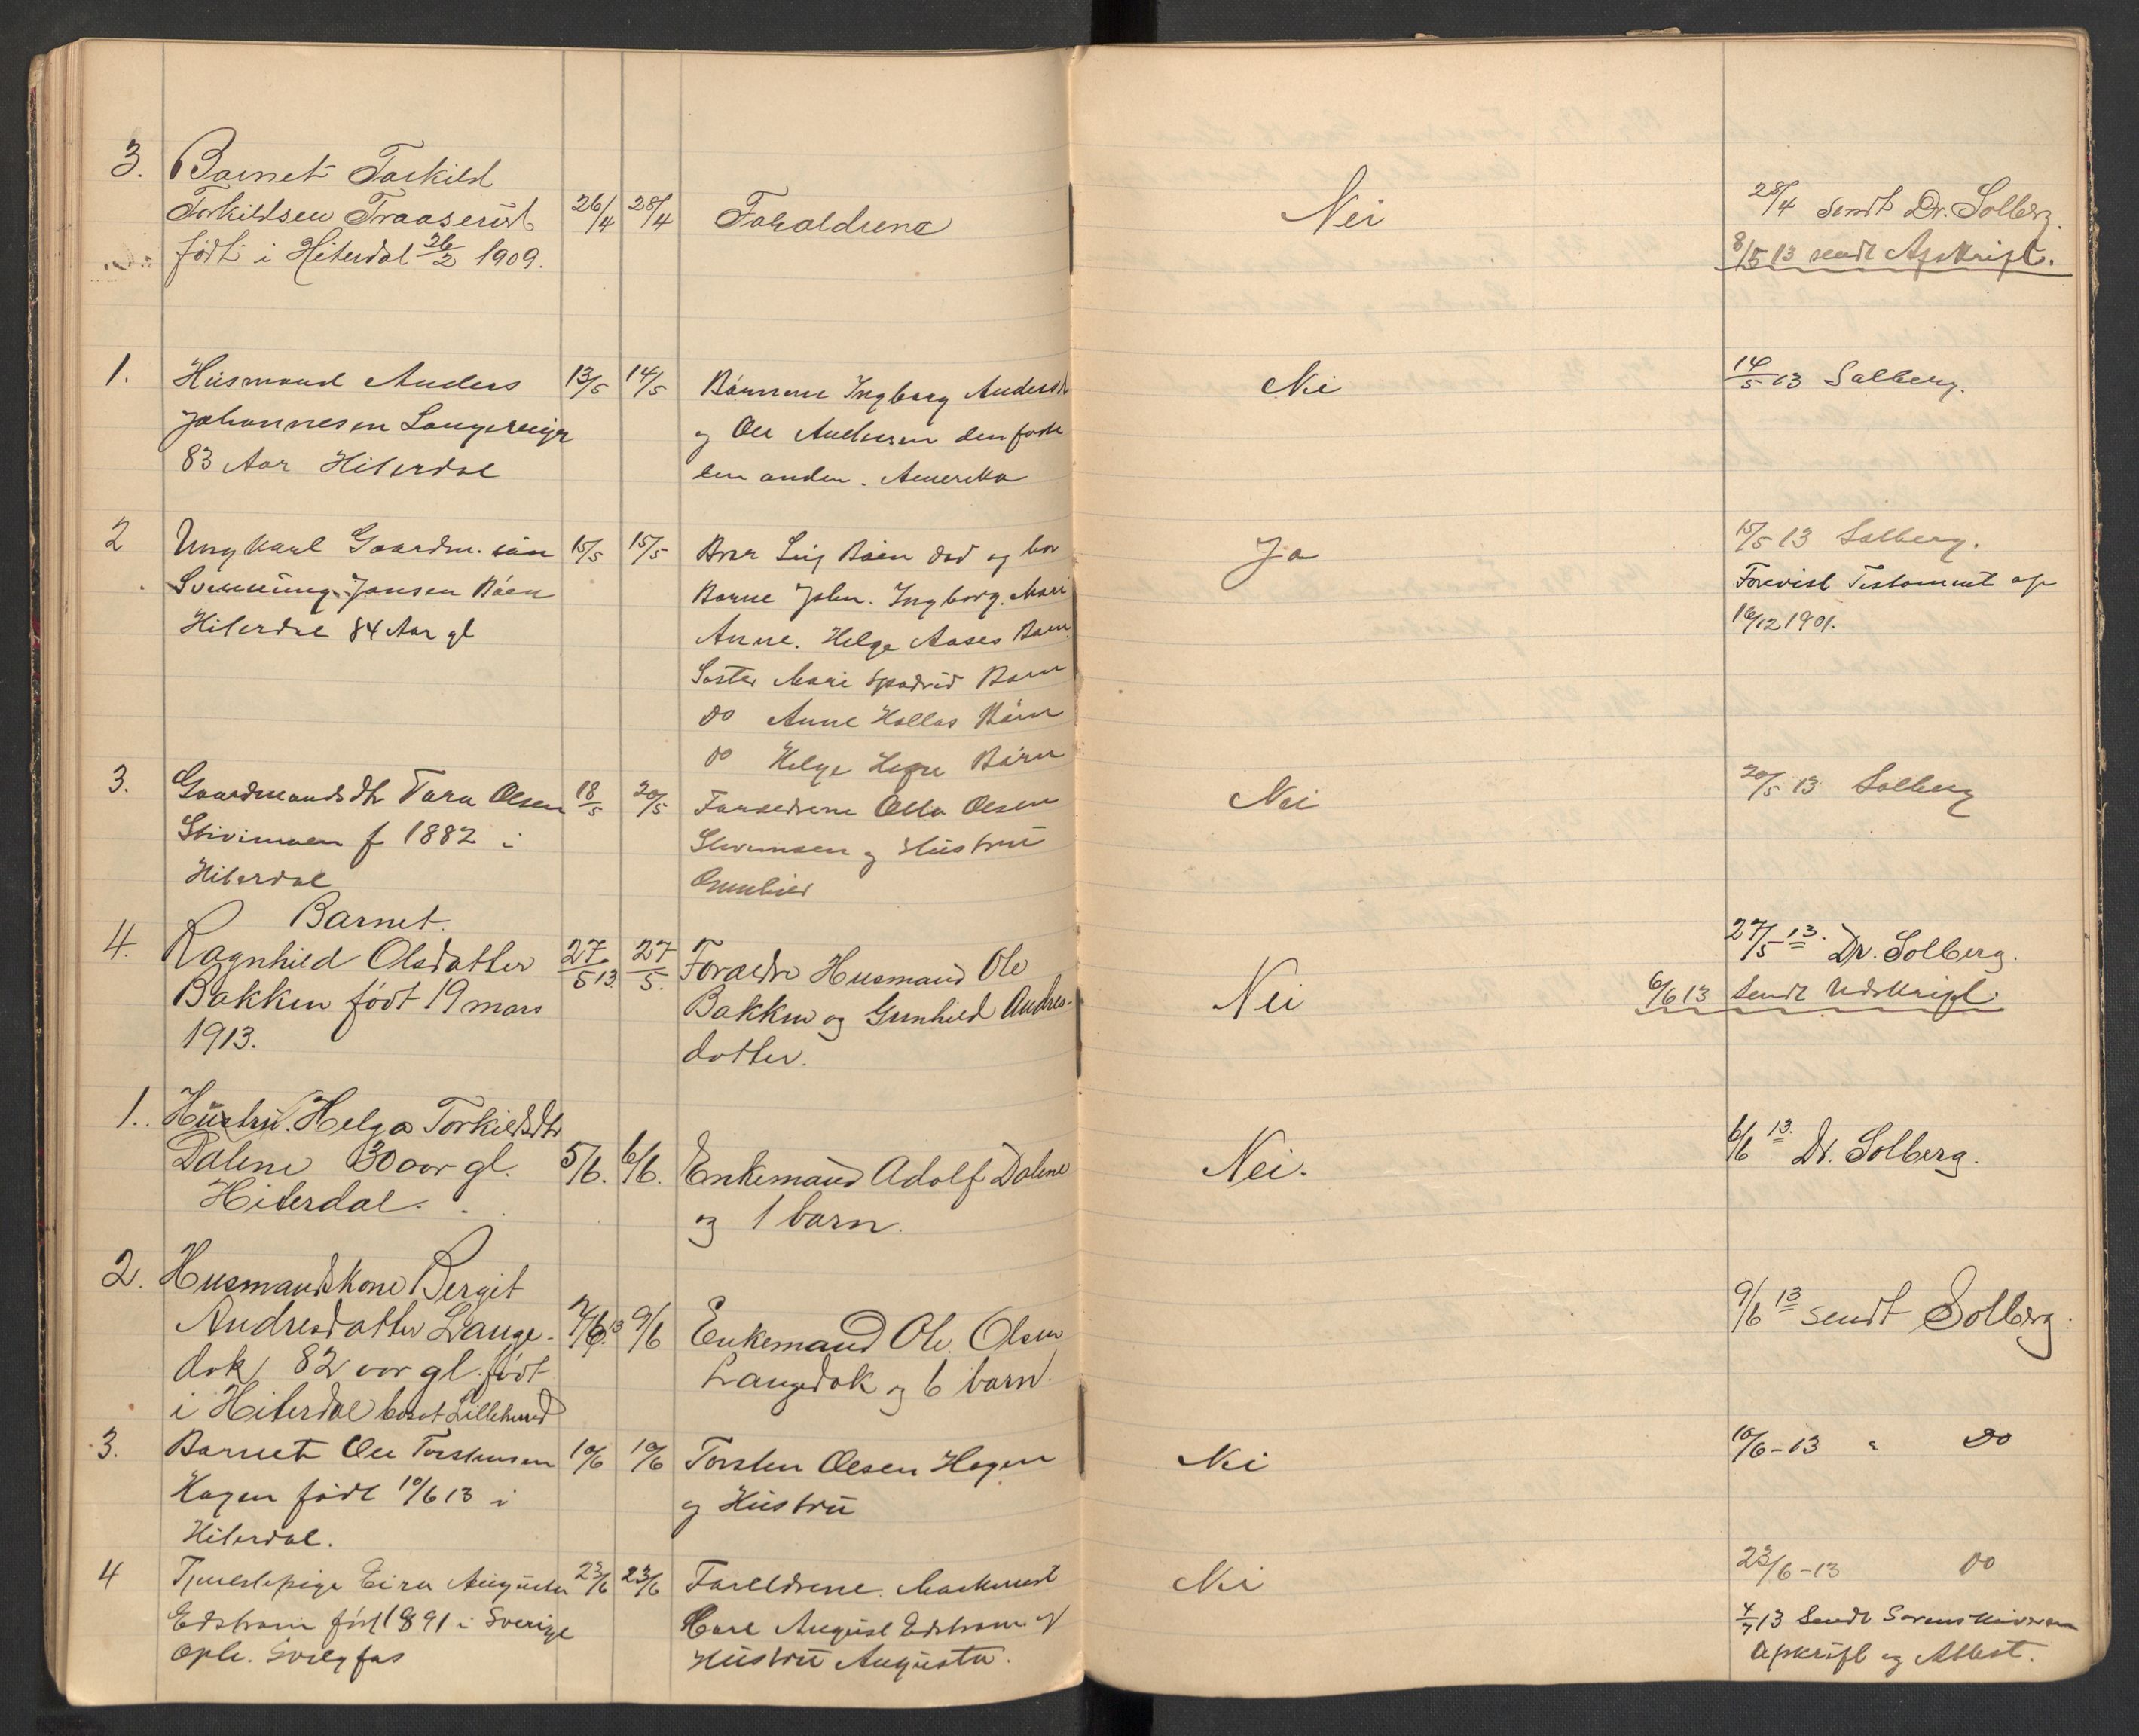 3. Barnet Torkild
Torkildsen Traaserud 26/4 28/4 Foraldrene Nei 28/4 sendt Dr. Solberg.
født i Hiterdal 26/2 1909. 8/5 13 sendt Afskrift.
1. Husmand Anders 13/5 14/5 Børnene Ingborg Andersdr Nei 14/5 13 Solberg.
Johannesen
og Ole Andersen den første
83 Aar Hiterdal
den anden. Amerika
2 Ungkarl Gaardm. søn 15/5 15/5 Bror Leif Bøen død og hos Ja 15/5 13 Solberg.
Jansen Bøen
Barne John. Ingborg. Mari
Forevist Testament af
Hiterdal 84 Aar gl
Anne. Helge Aases Barn
16/12 1901.
Søster Mari Barn
do Anne Hollas Børn
do Helge Børn
3. Gaardmandsdtr Tara Olsen 18/5 20/5 Foraldrene Olsen Nei 20/5 13 Solberg
f 1882 i
og Hustru
Hiterdal
Gunhild
Barnet.
4. Ragnhild Olsdatter 27/5 13. 27/5. Foraldre Husmand Ole Nei 27/5 13. Dr. Solberg.
Bakken født 19 mars
Bakken og Gunhild Andres-
6/6 13 Sendt Udskrift.
1913.
datter.
1. Hustru. Helga Torkildsdtr
Dalene 30 aar gl. 5/6. 6/6. Enkemand Adolf Dalene Nei. 6/6 13. Dr. Solberg.
Hiterdal.
og 1 barn.
2. Husmandskone Bergit
Andresdatter Lange- 7/6 13 9/6 Enkemand Ole Olsen 9/6 13 sendt Solberg.
dok, 82 aar gl. født
Langedok og 6 barn.
i Hiterdal bosat Lilleherred
3. Barnet Ole Torstensen 10/6 10/6 Torsten Olsen Hagen Nei 10/6-13 " do
Hagen født 10/6 13 i
og Hustru
Hiterdal.
4 Tjenestepige Augusta 23/6 23/6 Forældrene. Maskinist Nei 23/6-13 do
Edstrøm født 1891 i Sverige
Carl August Edstrøm og
4/7 13 Sendt Sorenskriveren
Opl.
Hustru Augusta.
Afskrift og Attest.